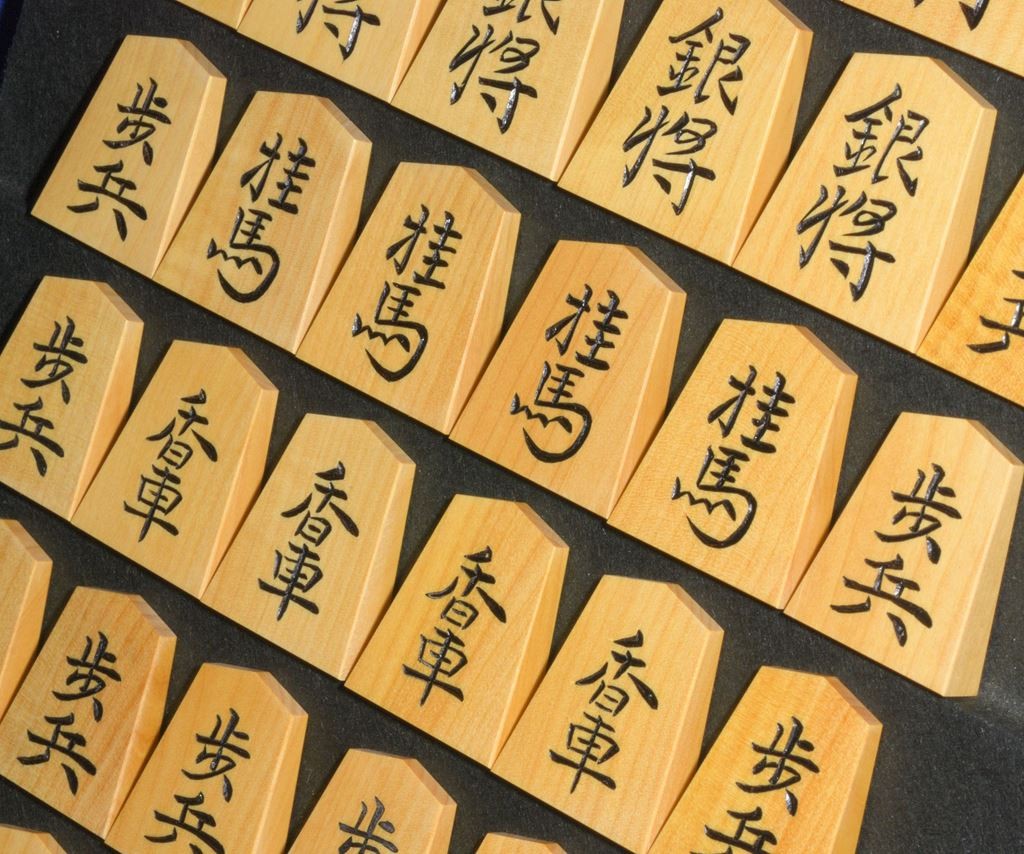 将
銀将
銀将
銀将
兵
歩兵
桂馬
桂馬
桂馬
桂馬
歩兵
歩兵
香車
香車
香車
香車
歩兵
歩兵
歩兵
歩